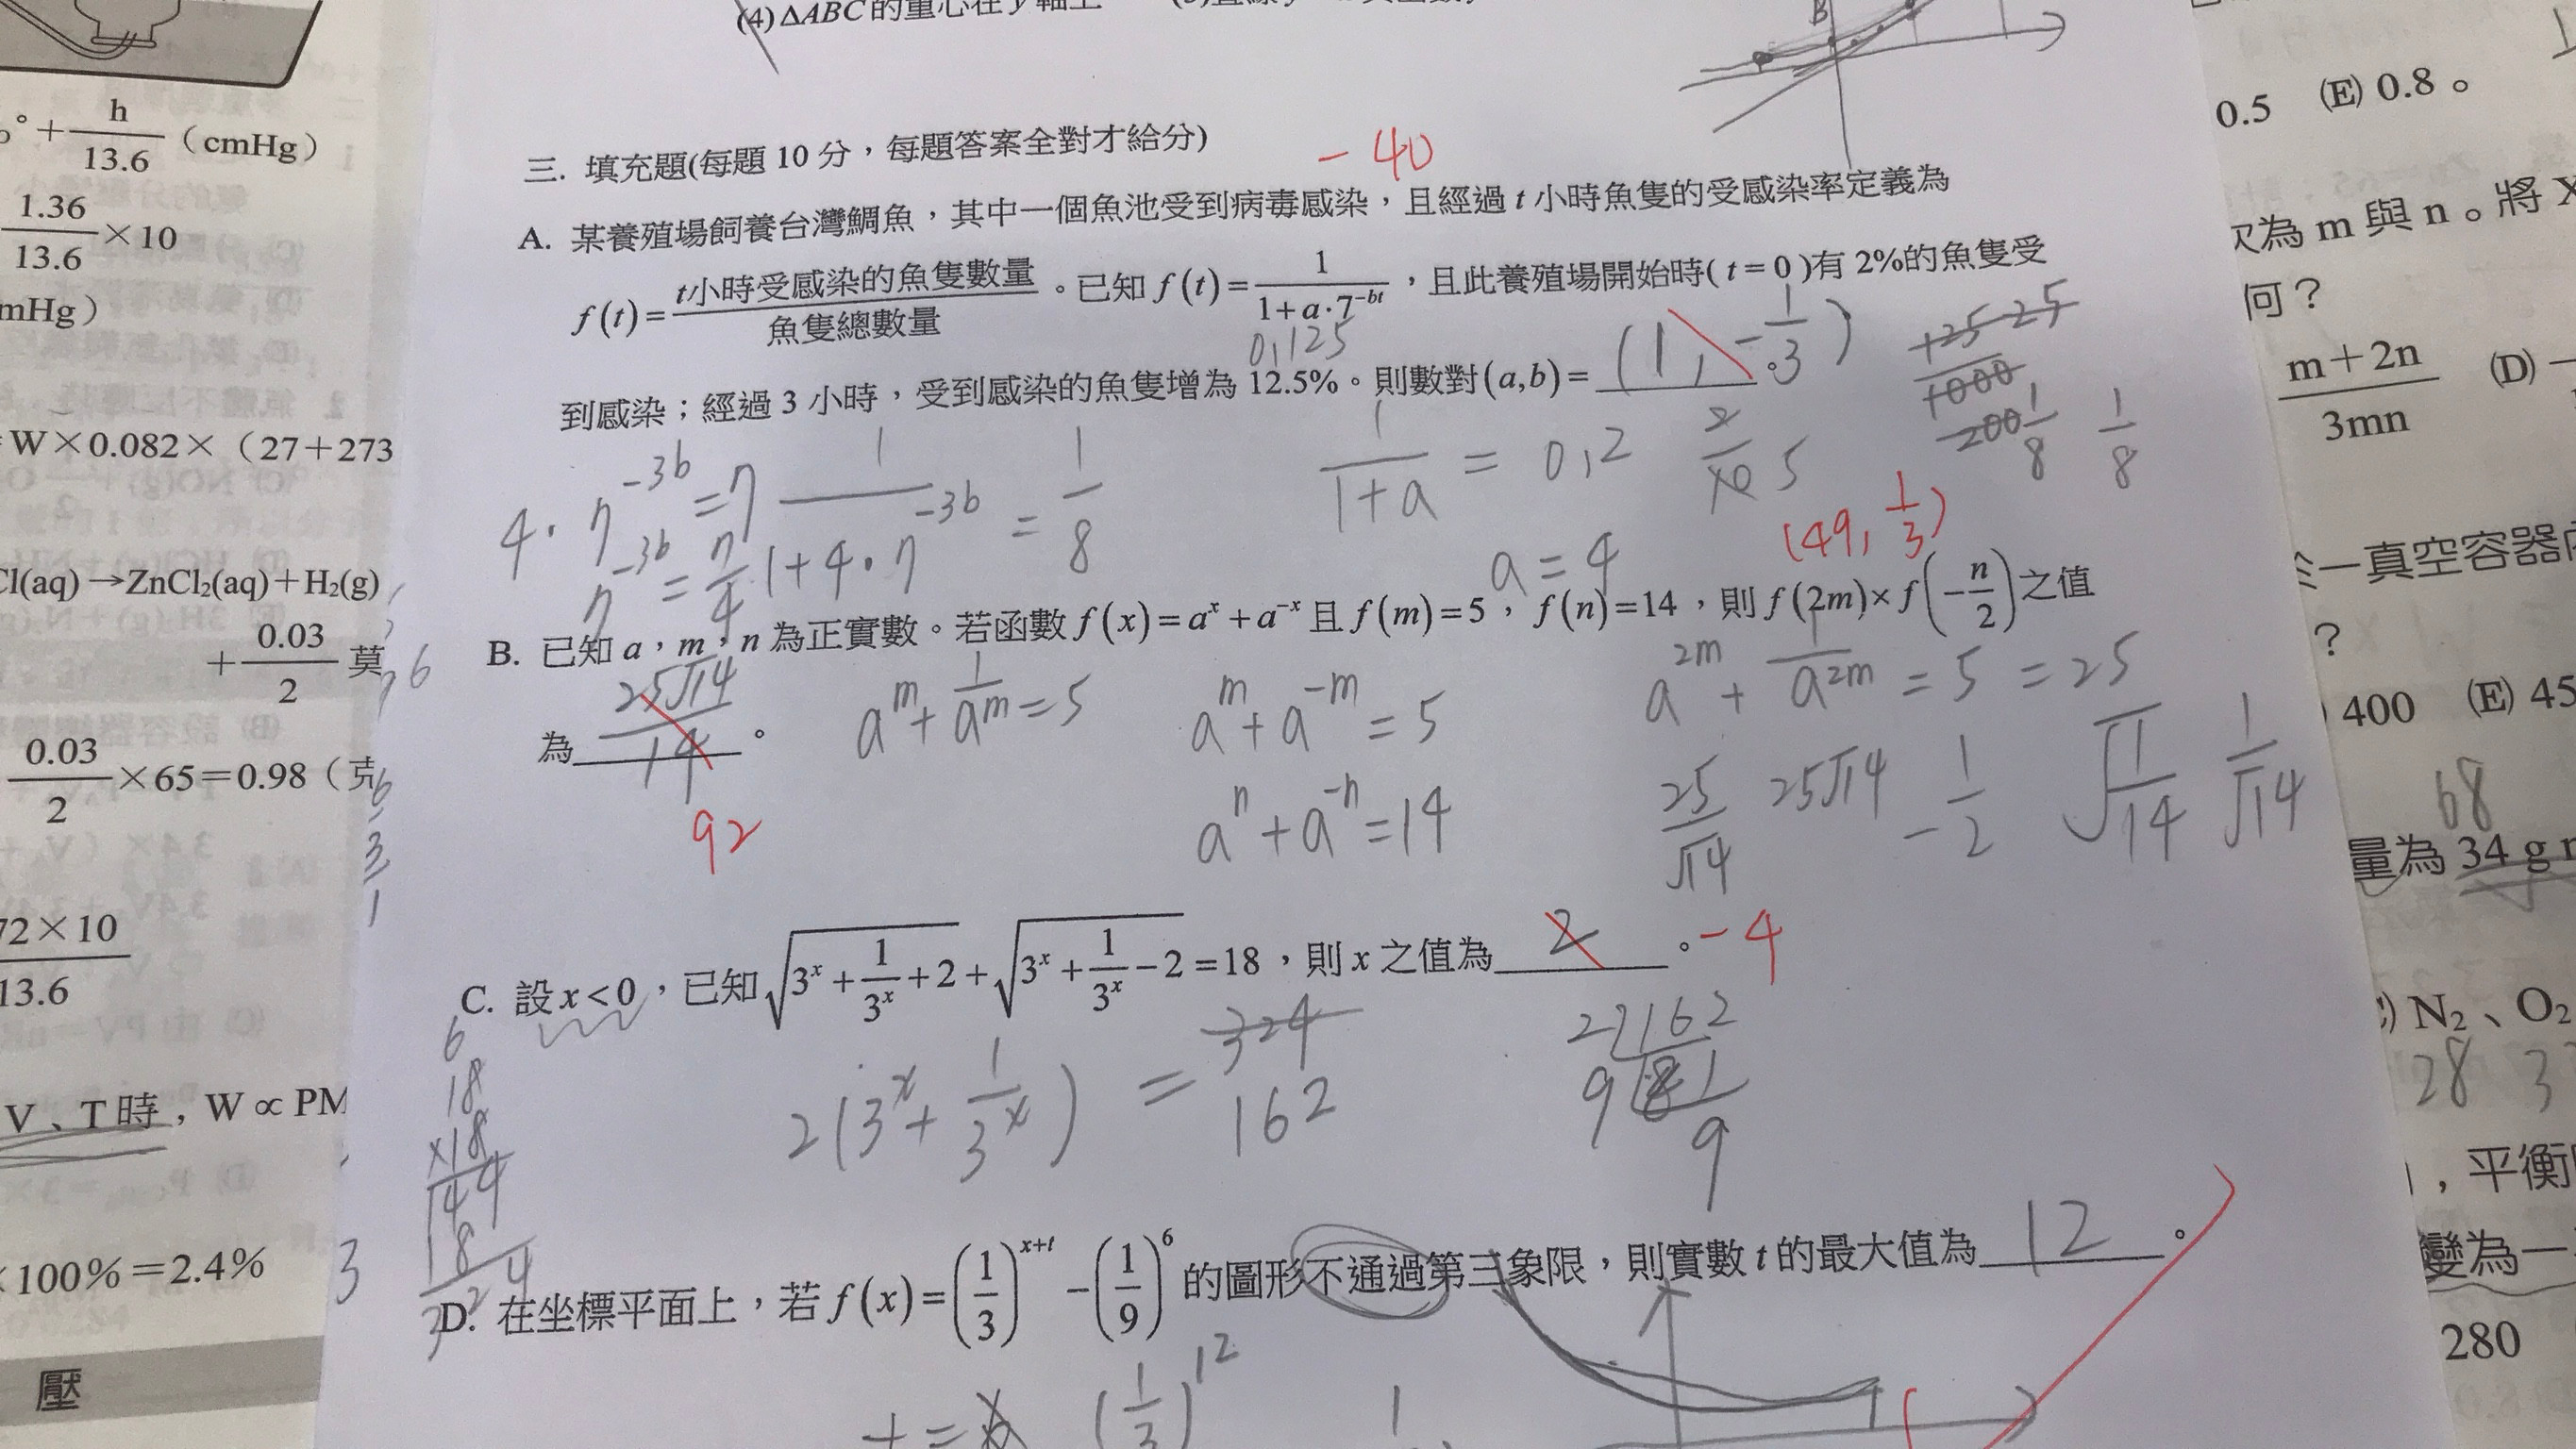 三. 填充題(每題 10 分，每題答案全對才給分)
-40
A. 某養殖場飼養台灣鯛魚，其中一個魚池受到病毒感染，且經過 t 小時魚隻的受感染率定義為
f(t)=t小時受感染的魚隻數量/魚隻總數量。已知 f(t)=1/(1+a·7^{-bt})，且此養殖場開始時(t=0)有 2%的魚隻受
0,125
到感染；經過 3 小時，受到感染的魚隻增為 12.5%。則數對(a,b)=(1, -1/3)。
4·7^{-3b}=7
1/(1+4·7^{-3b}) = 1/8
1/(1+a) = 0,2
1/8
7^{-3b} = 7/4
a=4
(49, 1/3)
B. 已知 a，m，n 為正實數。若函數 f(x)=a^x+a^{-x} 且 f(m)=5，f(n)=14，則 f(2m)×f(-n/2)之值
為 25√14/14。
92
a^m+1/a^m=5
a^m+a^{-m}=5
a^{2m}+1/a^{2m}=5=25
a^n+a^{-n}=14
25/√14
25√14
-1/2
√(1/14)
1/√14
C. 設 x<0，已知√(3^x+1/3^x+2)+√(3^x+1/3^x-2)=18，則 x 之值為 2。-4
2(3^x+1/3^x) = 324
162
2)162
9 81
9
18
×18
144
18
324
D. 在坐標平面上，若 f(x)=(1/3)^{x+t}-(1/9)^6 的圖形不通過第三象限，則實數 t 的最大值為 12。
(1/3)^{12}
h/13.6（cmHg）
1.36/13.6×10
13.6
mHg）
W×0.082×（27+273
Cl(aq)→ZnCl₂(aq)+H₂(g)
+0.03/2 莫
0.03/2×65=0.98（克
72×10
13.6
V、T 時，W∝PM
×100%=2.4%
壓
0.5 (E) 0.8。
為 m 與 n。將 X
何？
m+2n/3mn (D)
一真空容器
？
400 (E) 45
68
量為 34 g
N₂、O₂
28 3
，平衡
變為一
280